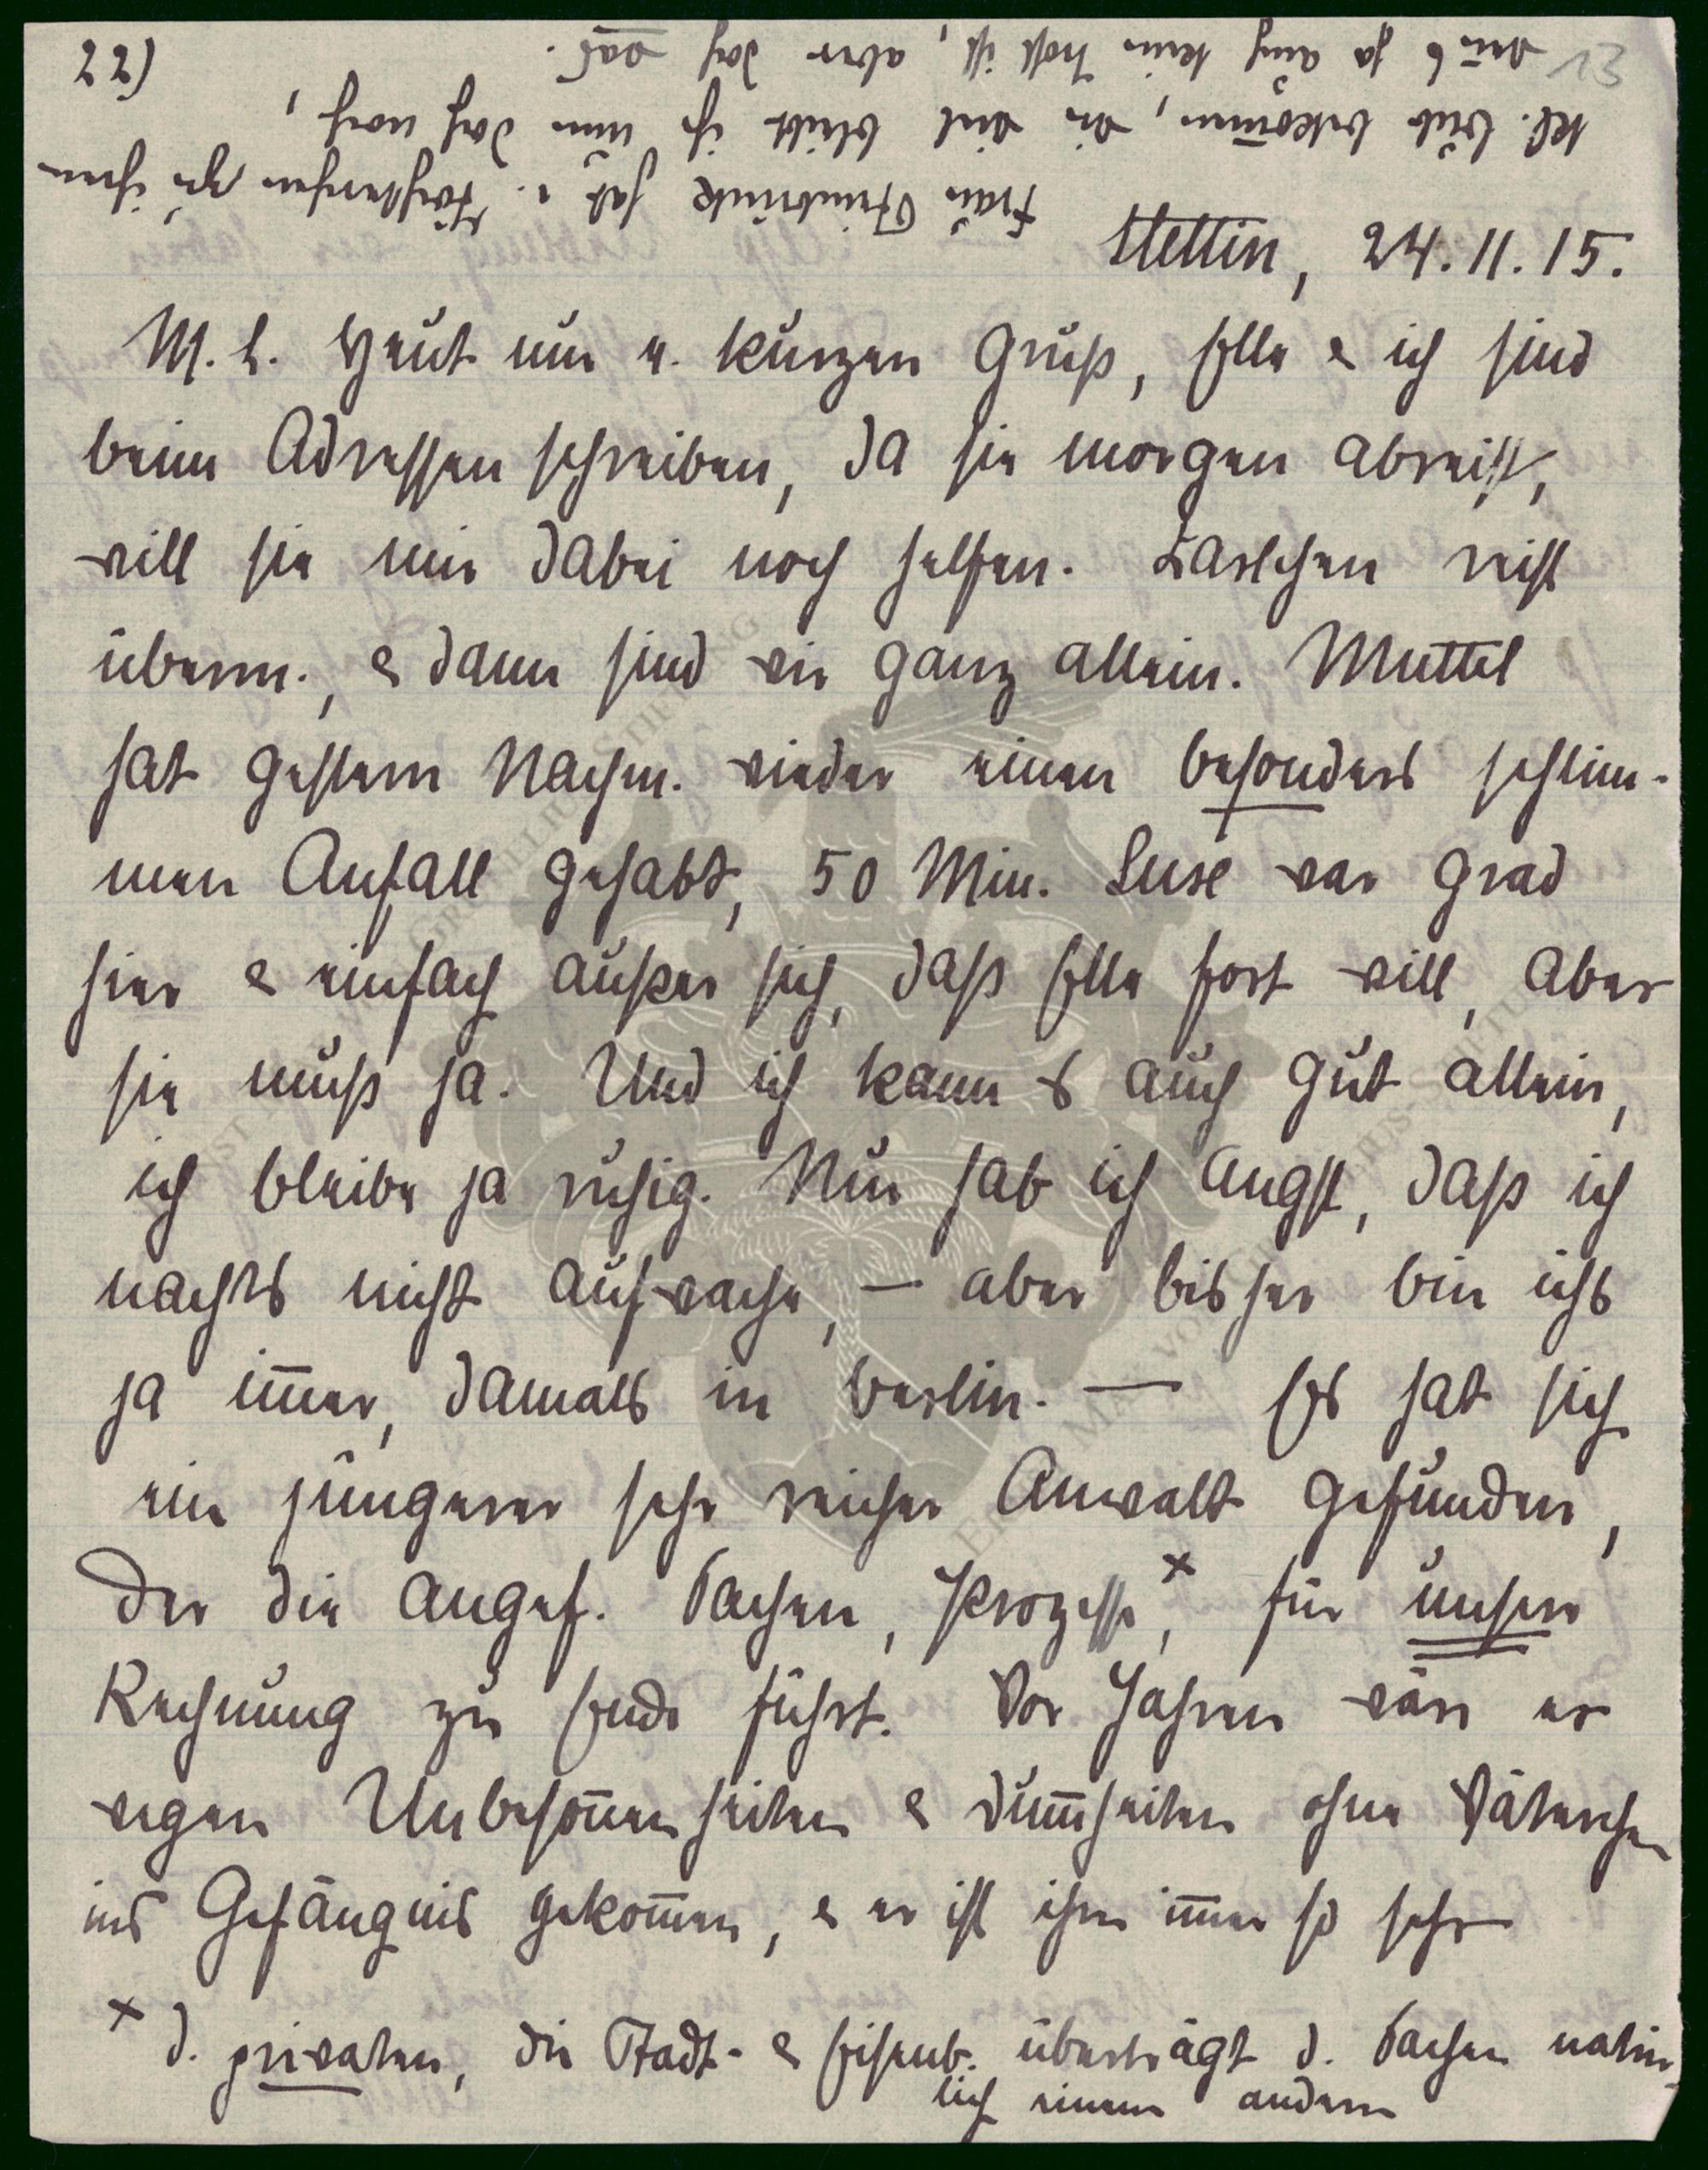 22)
13
Stettin, 24.11.15.
M. L. Heut nur e. kurzen Gruß, Ella & ich sind
beim Adressen schreiben, da sie morgen abreist,
will sie mir dabei noch helfen. Karlchen reist
überm., & dann sind wir ganz allein. Muttel
hat gestern Nachm. wieder einen besonders schlim-
men Anfall gehabt, 50 Min. Luse war grad
hier & einfach außer sich, daß Ella fort will, aber
sie muß ja. Und ich kann es auch gut allein,
ich bleibe ja ruhig. Nur hab ich Angst, daß ich
nachts nicht aufwache, — aber bisher bin ichs
ja im̅er, damals in Berlin. — Es hat sich
ein jüngerer sehr reicher Anwalt gefunden,
der die angef. Sachen, Prozesse,× für unsere
Rechnung zu Ende führt. Vor Jahren wäre er
wegen Unbeson̅enheiten & Dum̅heiten ohne Väterchen
ins Gefängnis gekom̅en, & er ist ihm im̅er so sehr
× d. privaten, die Stadt- & Eisenb. überträgt d. Sachen natür-
lich einem andern
Frau hat e. Töchterchen zu ihrem
kl. Bub bekom̅en, die viel bleibt ihr nun doch noch,
was ja auch kein Trost ist, aber doch was.